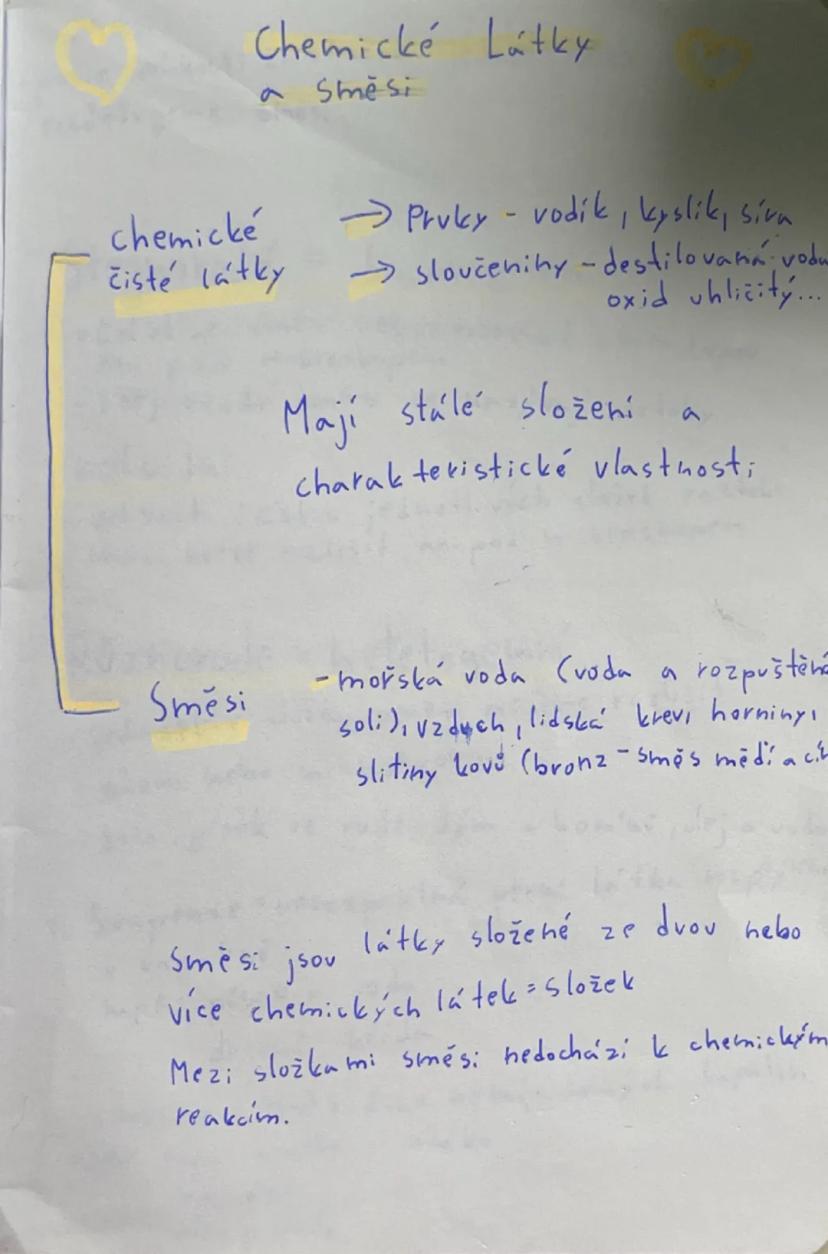 Chemické Látky
a směsi
chemické
čisté látky
→ Prvky - vodík, kyslík, síra
→ sloučeniny - destilovaná voda
oxid uhličitý...
Mají stálé složení a
charakteristické vlastnosti
Směsi
- mořská voda (voda a rozpuštěné
soli), vzduch, lidská krev, horniny,
slitiny kovů (bronz - směs mědi a
Směsi jsou látky složené ze dvou nebo
více chemických látek = složek
Mezi složkami směsi nedochází k chemickým
reakcím.